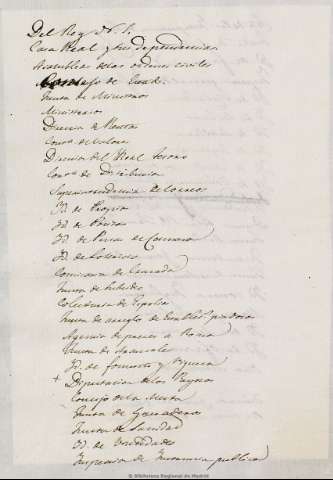 Del Rey N. S.
Casa Real y sus dependencias
Asamblea de las ordenes civiles
Consejo de Estad.
Junta de Ministros
Ministerios
Direccion de Rentas
Cont.ª de Valores
Direccion del Real Tesoro
Cont.ª de Distribucion
Superintendencia de
Id. de Propios
Id. de Positos
Id. de Penas de Camara
Id. de
Comisaria de Cruzada
Junta de Subsidio
Colecturia de Espolios
Junta de arreglo de
Agencia de preces a Roma
Junta de Aranceles
Id. de fomento y riqueza
+ Diputacion de los Reynos
Consejo de la Mesta
Junta de Ganaderos
Junta de Sanidad
Id. de
Inspeccion de Instruccion publica
© Biblioteca Regional de Madrid